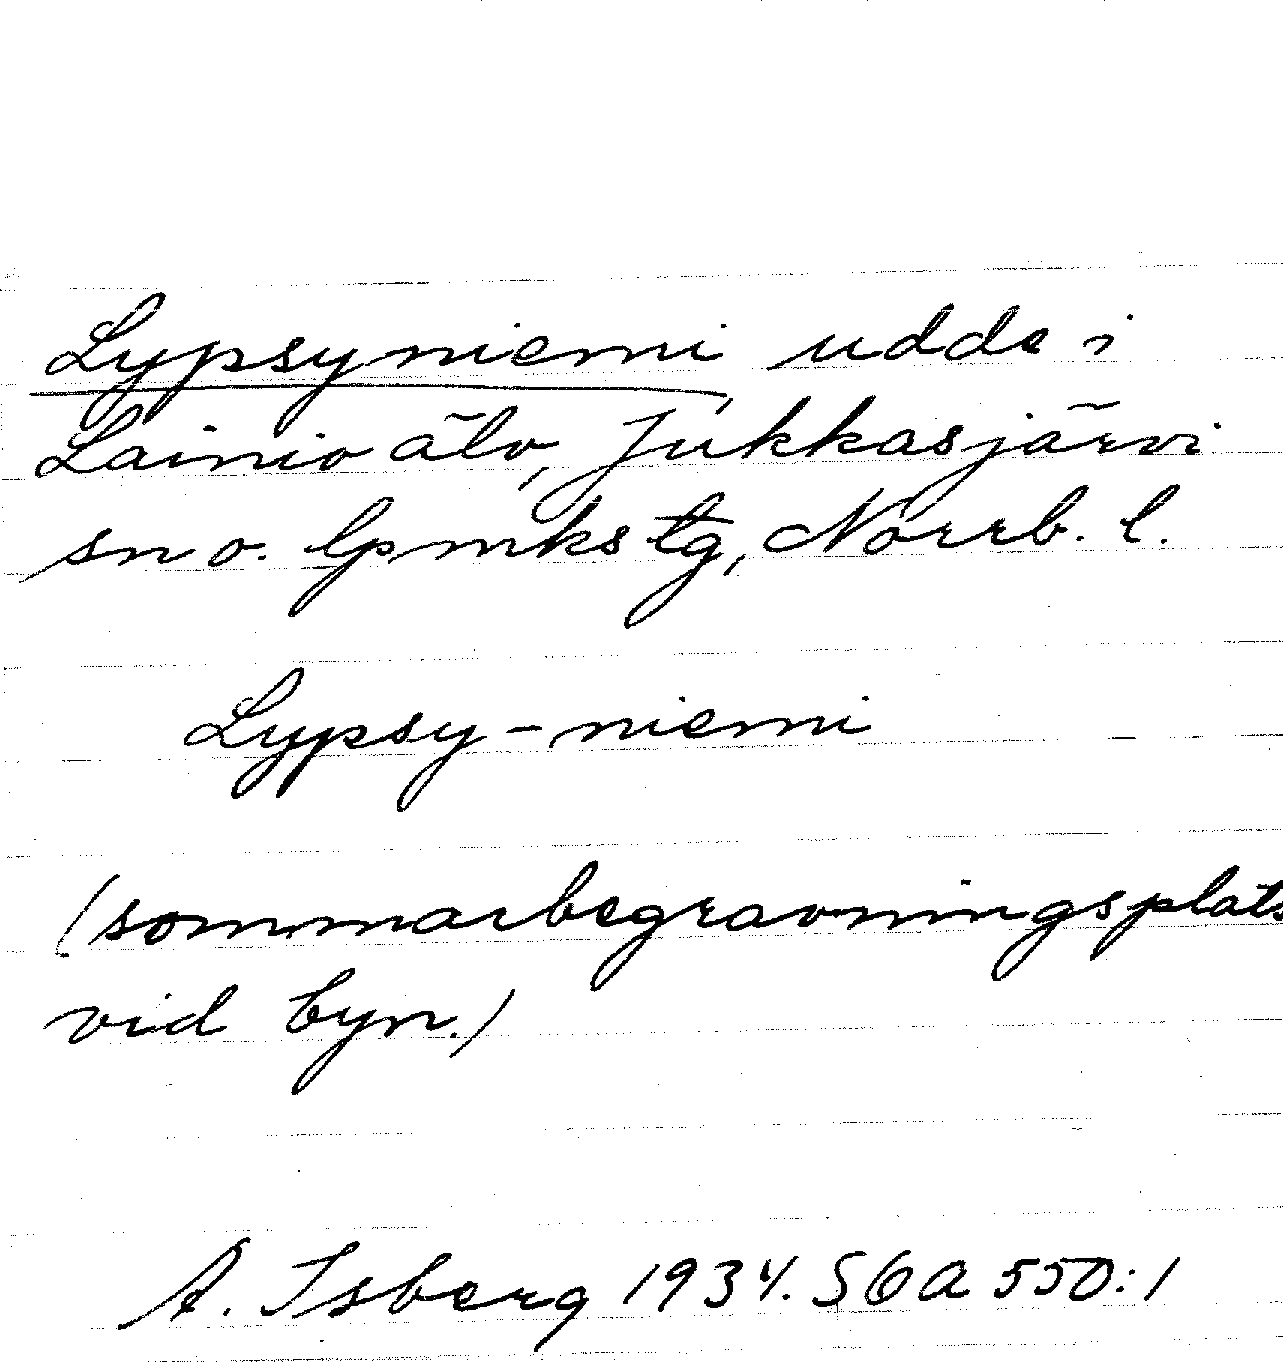 Lypsyniemi, udde i
Lainio älv, Jukkasjärvi
sn o. lpmks tg, Norrb. l.
Lypsy-niemi
(sommarbegravningsplats
vid byn.)
A. Isberg 1934. SOA 550:1